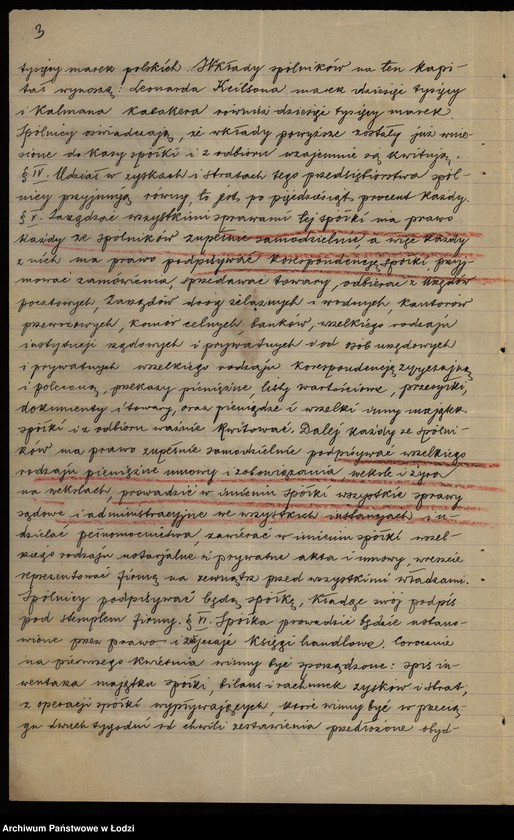 3
tysięcy marek polskich. Wkłady spólników na ten kapi-
tał wynoszą: Leonarda Keilsona marek dziesięć tysięcy
i Kalmana Kabakera również dziesięć tysięcy marek.
Spólnicy oświadczają, że wkłady powyższe zostały już wnie-
sione do kasy spółki i z odbioru wzajemnie się kwitują.
§ IV. Udział w zyskach i stratach tego przedsiębiorstwa spól-
nicy przyjmują równy, to jest, po pięćdziesiąt procent każdy.
§ V. Zarządzać wszystkiemi sprawami tej spółki ma prawo
każdy ze spólników zupełnie samodzielnie, a więc każdy
z nich ma prawo podpisywać korespondencję spółki, przyj-
mować zamówienia, sprzedawać towary, odbierać z Urzędów
pocztowych, Zarządów dróg żelaznych i wodnych, kantorów
przewozowych, komór celnych, banków, wszelkiego rodzaju
instytucji rządowych i prywatnych i od osób urzędowych
i prywatnych wszelkiego rodzaju korespondencję zwyczajną
i poleconą, przekazy pieniężne, listy wartościowe, przesyłki,
dokumenty i towary, oraz pieniądze i wszelki inny majątek
spółki i z odbioru ważnie kwitować. Dalej każdy ze spólni-
ków ma prawo zupełnie samodzielnie podpisywać wszelkiego
rodzaju pieniężne umowy i zobowiązania, weksle i żyra
na wekslach, prowadzić w imieniu spółki wszystkie sprawy
sądowe i administracyjne we wszystkich instancjach i u-
dzielać pełnomocnictwa zawierać w imieniu spółki wszel-
kiego rodzaju notarjalne i prywatne akta i umowy, wreszcie
reprezentować firmę na zewnątrz przed wszystkimi władzami.
Spólnicy podpisywać będą spółkę, kładąc swój podpis
pod stemplem firmy. § VI. Spółka prowadzić będzie ustano-
wione przez prawo i zwyczaje księgi handlowe. Corocznie
na pierwszego kwietnia winny być sporządzone: spis in-
wentarza majątku spółki, bilans i rachunek zysków i strat,
z operacji spółki wypływających, które winny być w przecią-
gu dwuch tygodni od chwili zestawienia przedłożone obyd-
Archiwum Państwowe w Łodzi